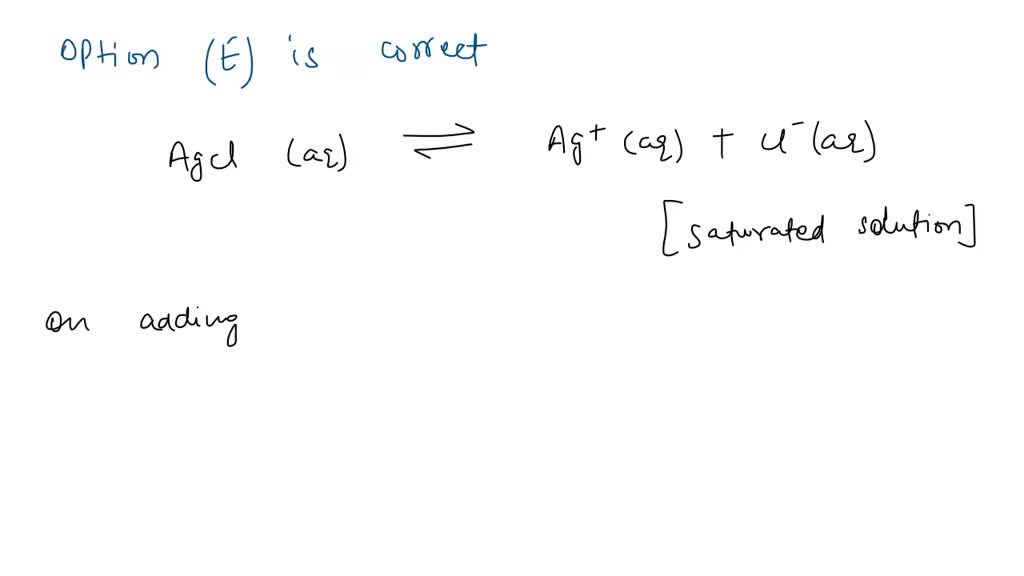 Option (E) is correct
AgCl (aq) ⇌ Ag⁺ (aq) + Cl⁻ (aq)
[saturated solution]
On adding